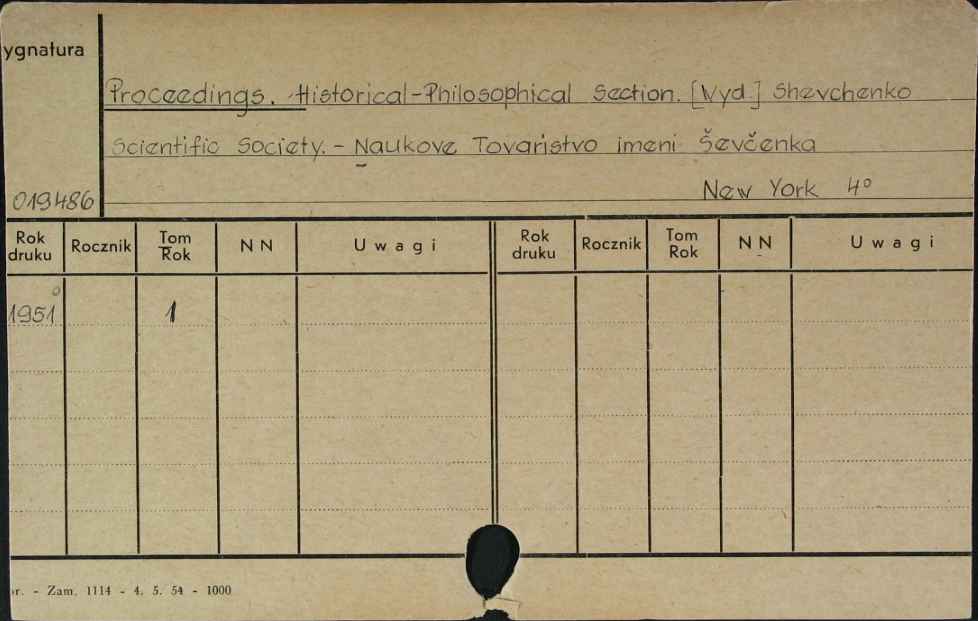 ygnatura
Proceedings. Historical-Philosophical Section. [Wyd.] Shevchenko
Scientific Society. - Naukove Tovaristvo imeni Ševčenka
019486
New York 4°
Rok druku Rocznik Tom Rok NN Uwagi Rok druku Rocznik Tom Rok NN Uwagi
1951 1
r. - Zam. 1114 - 4. 5. 54 - 1000